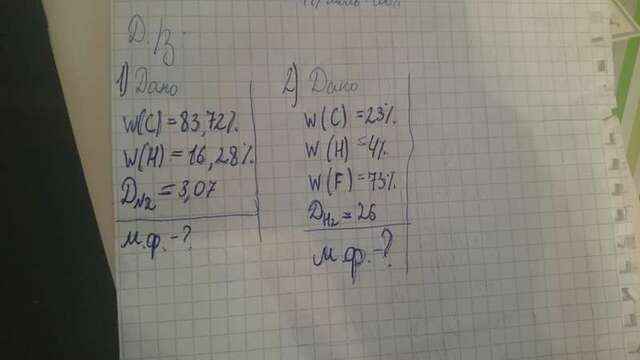 Д./з.
1) Дано
W(C) = 83,72%.
W(H) = 16,28%.
D_N2 = 3,07
м.ф. - ?
2) Дано
W(C) = 23%.
W(H) = 4%.
W(F) = 73%.
D_H2 = 26
м.ф. - ?